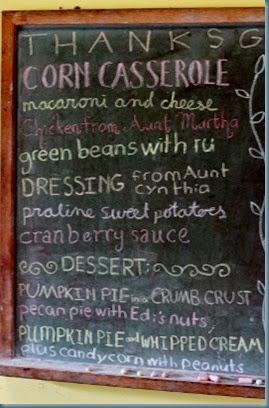 THANKSG
CORN CASSEROLE
macaroni and cheese
Chicken from Aunt Martha
green beans with ru
DRESSING from Aunt
Cynthia
praline sweet potatoes
cranberry sauce
DESSERT:
PUMPKIN PIE in a CRUMB CRUST
pecan pie with Edi's nuts
PUMPKIN PIE and WHIPPED CREAM
plus candycorn with peanuts